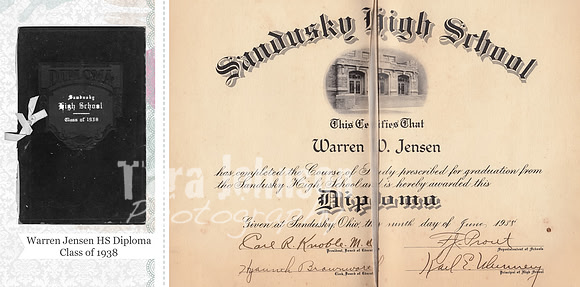 DIPLOMA
Sandusky
High School
Class of 1938
Warren Jensen HS Diploma
Class of 1938
Sandusky High School
This Certifies That
Warren D. Jensen
has completed the Course of Study prescribed for graduation from
the Sandusky High School and is hereby awarded this
Diploma
Given at Sandusky, Ohio, this ninth day of June, 1938
Carl R. Knoble. M. D.
President, Board of Education
F. J. Prout
Superintendent of Schools
Clerk, Board of Education
Karl E. Whinnery
Principal of High School
Tara Johnson
Photography